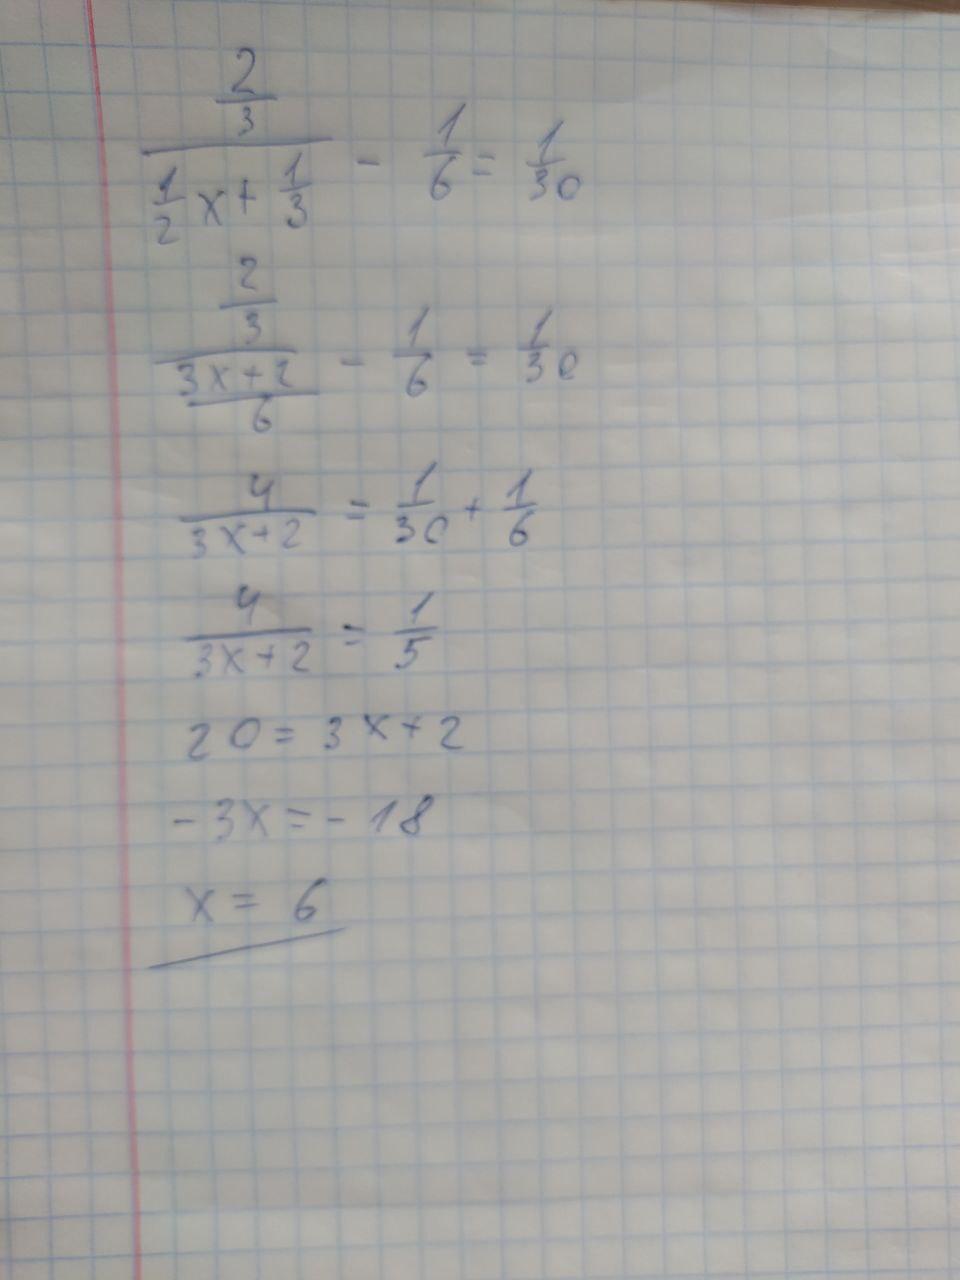 \frac{\frac{2}{3}}{\frac{1}{2}x+\frac{1}{3}} - \frac{1}{6} = \frac{1}{30}
\frac{\frac{2}{3}}{\frac{3x+2}{6}} - \frac{1}{6} = \frac{1}{30}
\frac{4}{3x+2} = \frac{1}{30} + \frac{1}{6}
\frac{4}{3x+2} = \frac{1}{5}
20 = 3x+2
-3x = -18
x = 6